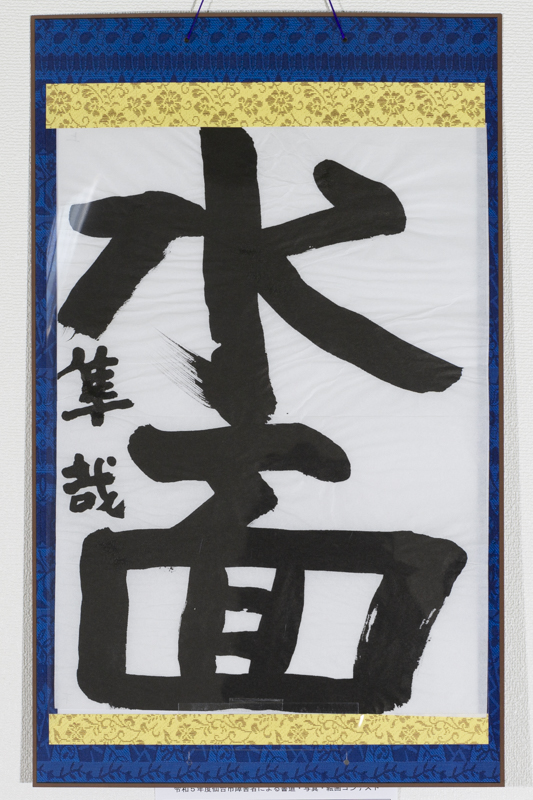 水面
隼哉
令和5年度仙台市障害者による書道・写真・絵画コンテスト